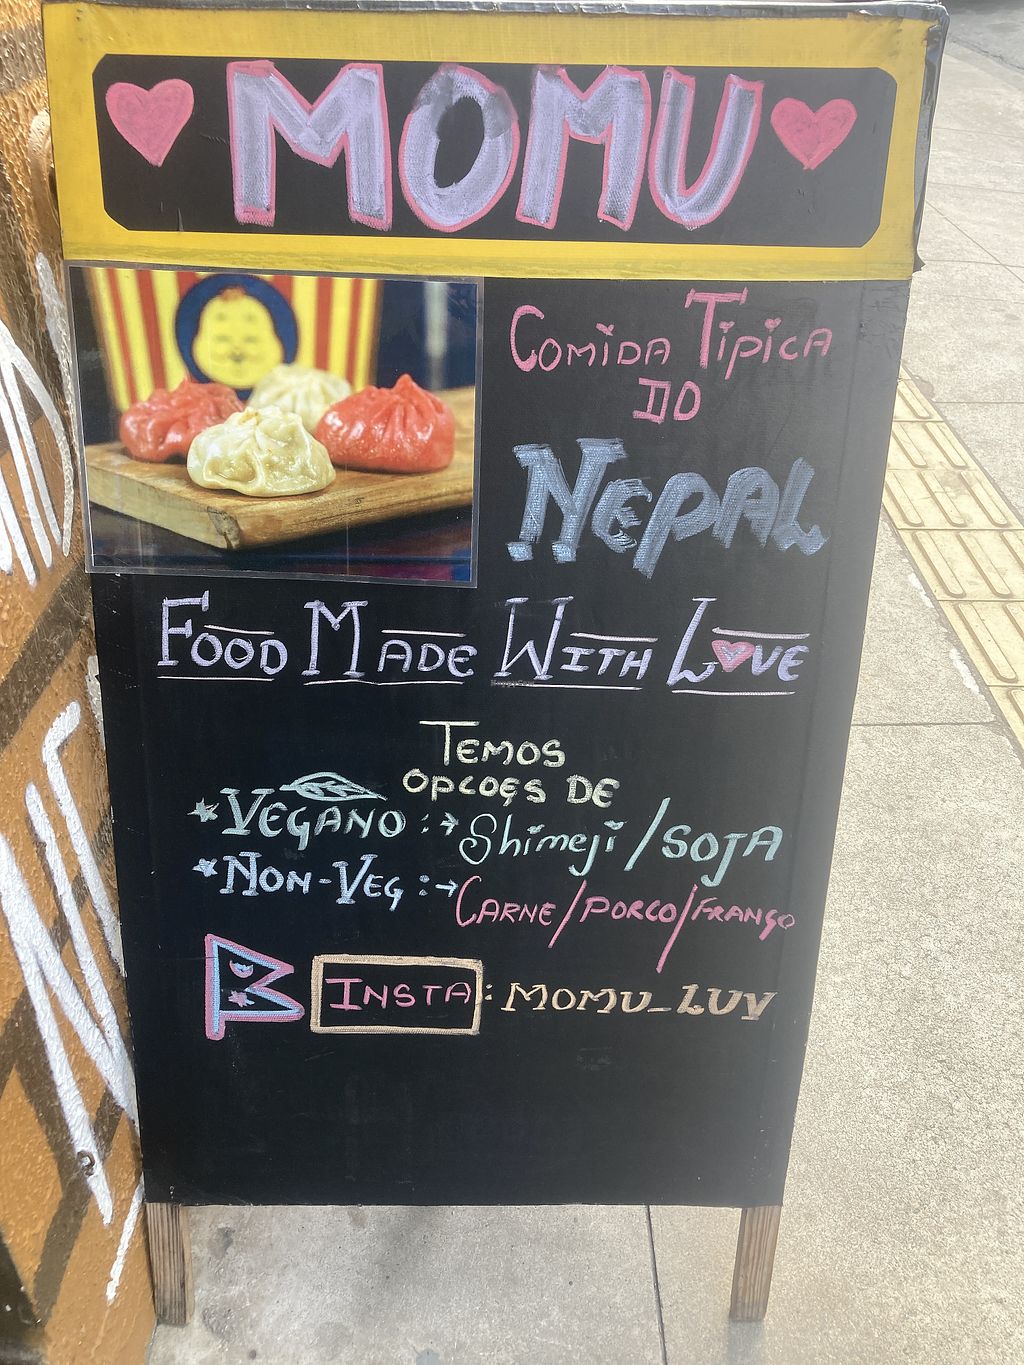 MOMU
COMIDA TIPICA
DO
NEPAL
FOOD MADE WITH LOVE
TEMOS
OPCOES DE
VEGANO :→ Shimeji/SOJA
NON-VEG :→ CARNE/PORCO/FRANGO
INSTA: MOMU_LUV